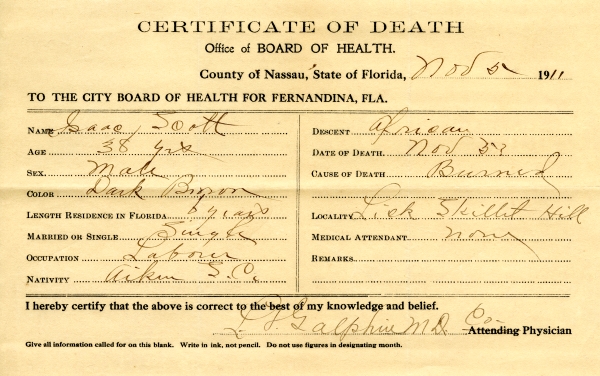 CERTIFICATE OF DEATH
Office of BOARD OF HEALTH.
County of Nassau, State of Florida, Nov 5 1911
TO THE CITY BOARD OF HEALTH FOR FERNANDINA, FLA.
NAME Isaac Scott
AGE 38 yrs
SEX. Male
COLOR Dark Brown
LENGTH RESIDENCE IN FLORIDA 6 years
MARRIED OR SINGLE Single
OCCUPATION Labour
NATIVITY Aiken S. C.
DESCENT African
DATE OF DEATH. Nov 5
CAUSE OF DEATH Burned
LOCALITY Lick Skillit Hill
MEDICAL ATTENDANT none
REMARKS
I hereby certify that the above is correct to the best of my knowledge and belief.
Galphin M.D. Co. Attending Physician
Give all information called for on this blank. Write in ink, not pencil. Do not use figures in designating month.